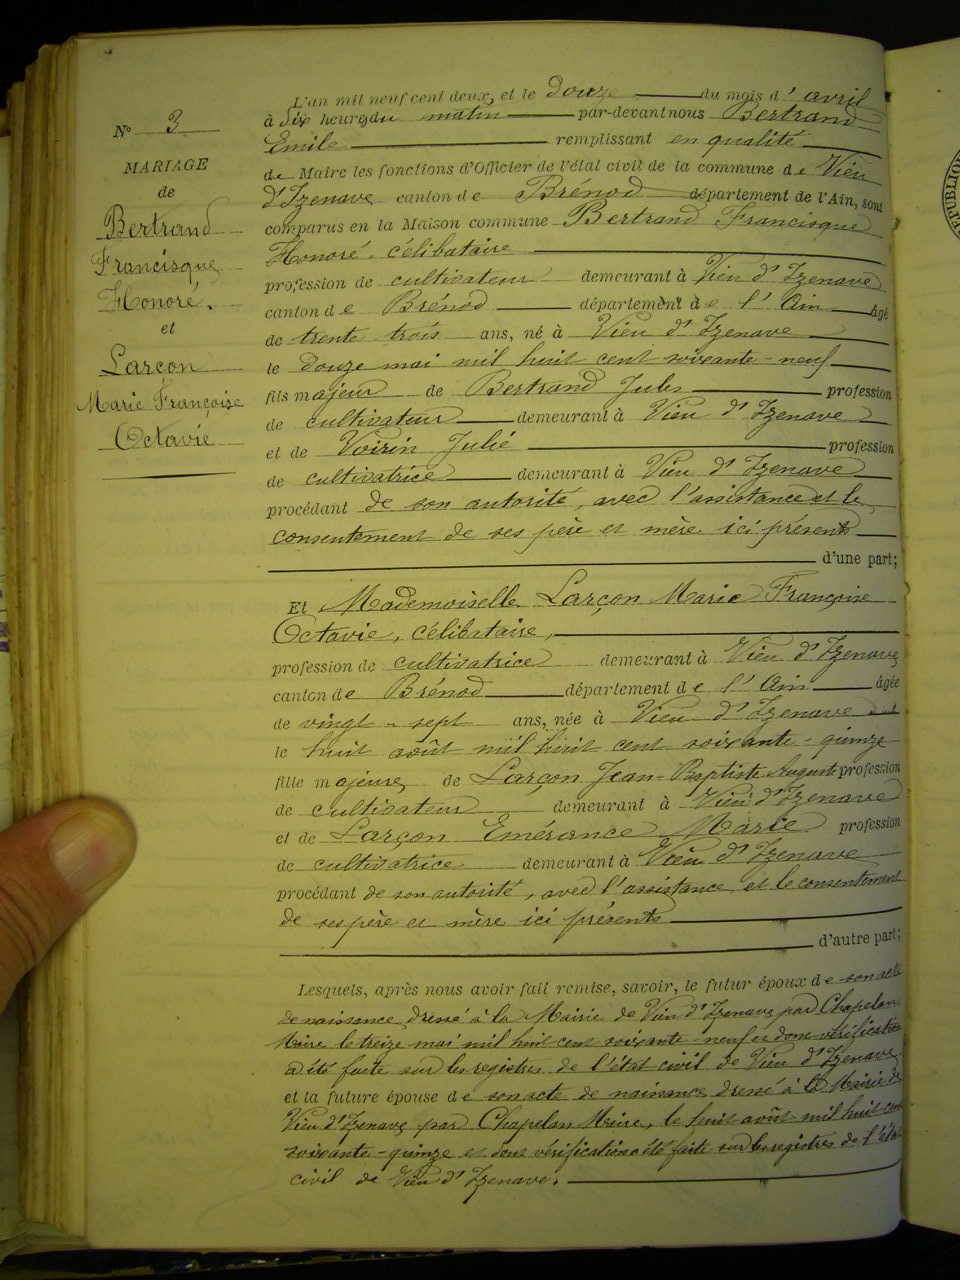 N° 3
MARIAGE
de
Bertrand
Francisque
Honoré.
et
Larçon
Marie Françoise
Octavie
L'an mil neuf cent deux, et le douze du mois d'avril
à dix heures du matin par-devant nous Bertrand
Emile remplissant en qualité
de Maire les fonctions d'Officier de l'état civil de la commune de Vieu
d'Izenave canton de Brénod département de l'Ain, sont
comparus en la Maison commune Bertrand Francisque
Honoré, célibataire
profession de cultivateur demeurant à Vieu d'Izenave
canton de Brénod département de l'Ain âgé
de trente trois ans, né à Vieu d'Izenave
le douze mai mil huit cent soixante-neuf
fils majeur de Bertrand Jules profession
de cultivateur demeurant à Vieu d'Izenave
et de Voisin Julie profession
de cultivatrice demeurant à Vieu d'Izenave
procédant de son autorité, avec l'assistance et le
consentement de ses père et mère ici présents
d'une part;
Et Mademoiselle Larçon Marie Françoise
Octavie, célibataire,
profession de cultivatrice demeurant à Vieu d'Izenave
canton de Brénod département de l'Ain âgée
de vingt-sept ans, née à Vieu d'Izenave
le huit août mil huit cent soixante-quinze
fille majeure de Larçon Jean-Baptiste Auguste profession
de cultivateur demeurant à Vieu d'Izenave
et de Larçon Emérance Marie profession
de cultivatrice demeurant à Vieu d'Izenave
procédant de son autorité, avec l'assistance et le consentement
de ses père et mère ici présents
d'autre part;
Lesquels, après nous avoir fait remise, savoir, le futur époux de son acte
de naissance dressé à la Mairie de Vieu d'Izenave par Chapelan
Maire le treize mai mil huit cent soixante-neuf et dont vérification
a été faite sur les registres de l'état civil de Vieu d'Izenave
et la future épouse de son acte de naissance dressé à la Mairie de
Vieu d'Izenave par Chapelan Maire, le huit août mil huit cent
soixante-quinze et dont vérification a été faite sur les registres de l'état
civil de Vieu d'Izenave.